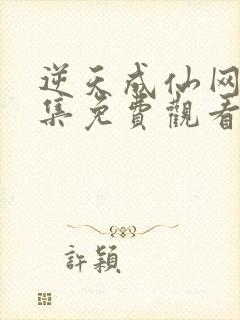 逆天成仙网
集免費觀看
許穎